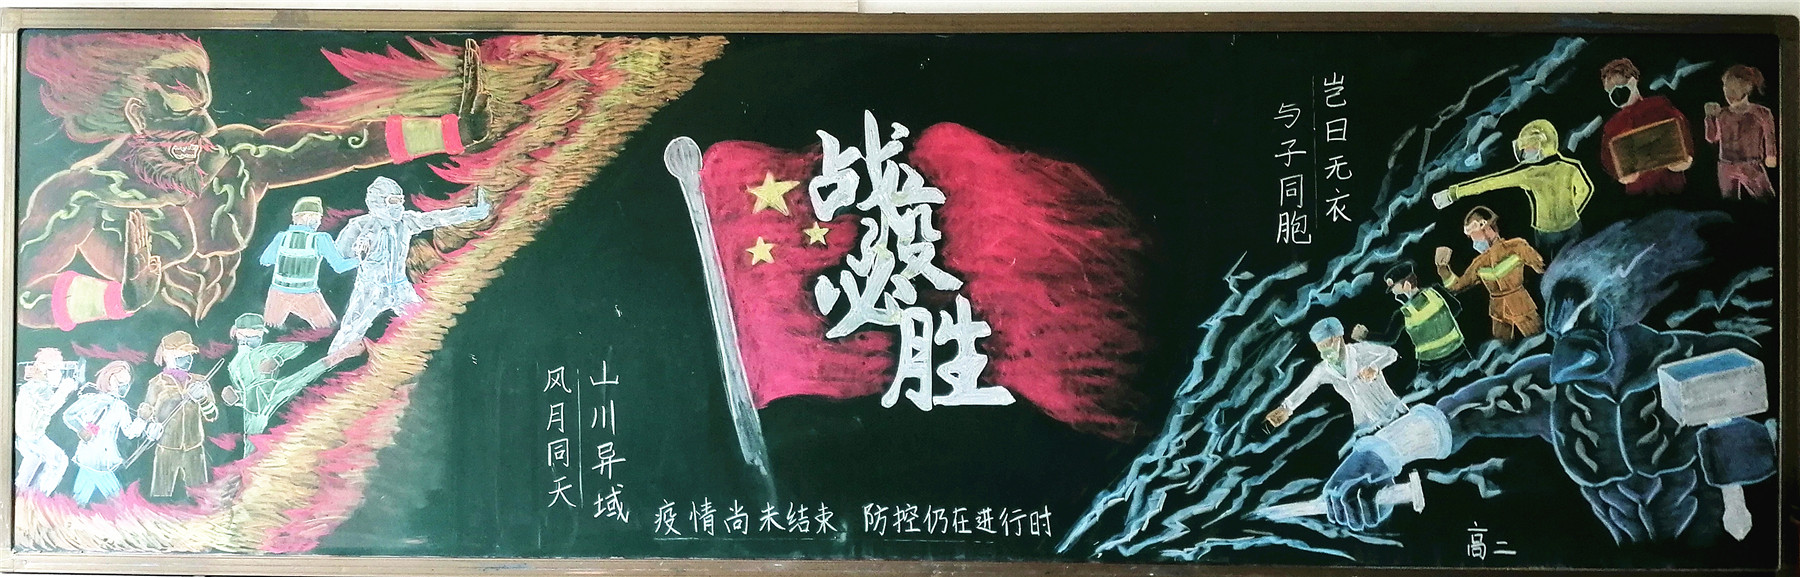 战役必胜
山川异域
风月同天
岂曰无衣
与子同胞
疫情尚未结束 防控仍在进行时
高二